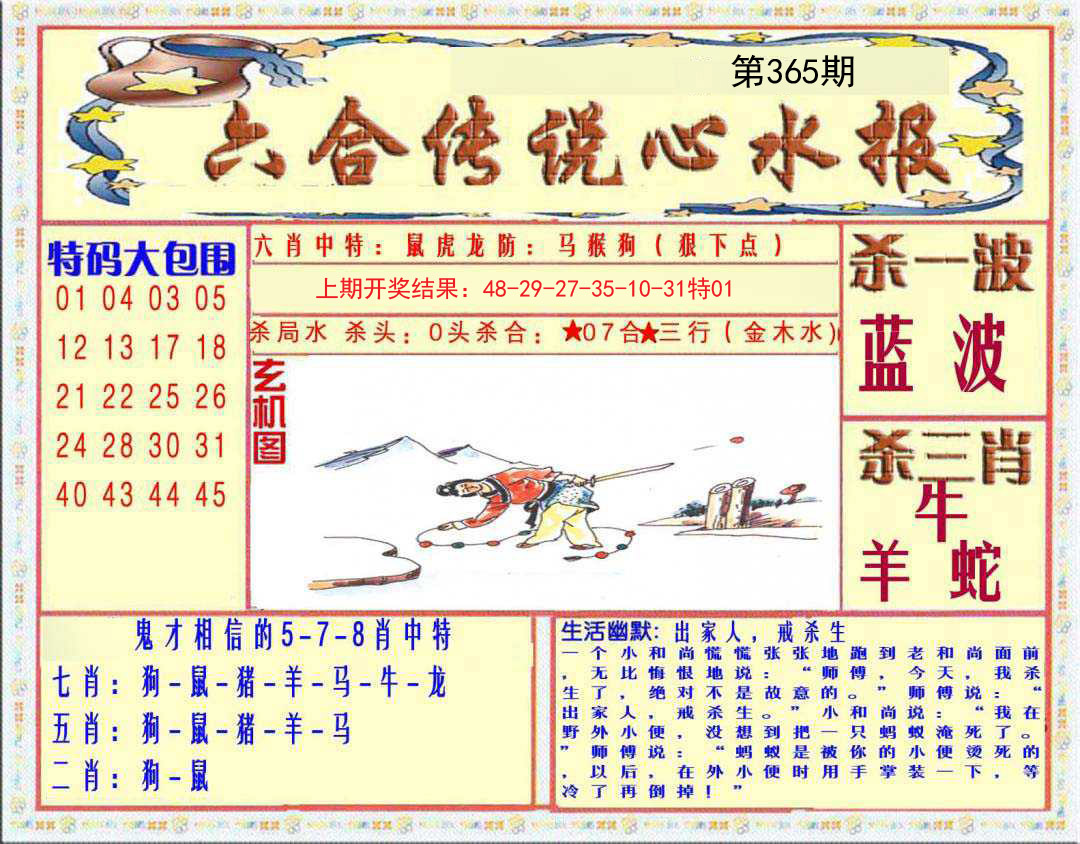 第365期
六合传说心水报
特码大包围
01 04 03 05
12 13 17 18
21 22 25 26
24 28 30 31
40 43 44 45
六肖中特：鼠虎龙防：马猴狗（狠下点）
上期开奖结果：48-29-27-35-10-31特01
杀局水 杀头：0头杀合：★07合★三行（金木水)
玄机图
杀一波
蓝波
杀三肖
牛
羊 蛇
鬼才相信的5-7-8肖中特
七肖：狗-鼠-猪-羊-马-牛-龙
五肖：狗-鼠-猪-羊-马
二肖：狗-鼠
生活幽默：出家人，戒杀生
一个小和尚慌慌张张地跑到老和尚面前
，无比悔恨地说：“师傅，今天，我杀
生了，绝对不是故意的。”师傅说：“
出家人，戒杀生。”小和尚说：“我在
野外小便，没想到把一只蚂蚁淹死了。
”师傅说：“蚂蚁是被你的小便烫死的
，以后，在外小便时用手掌装一下，等
冷了再倒掉！”